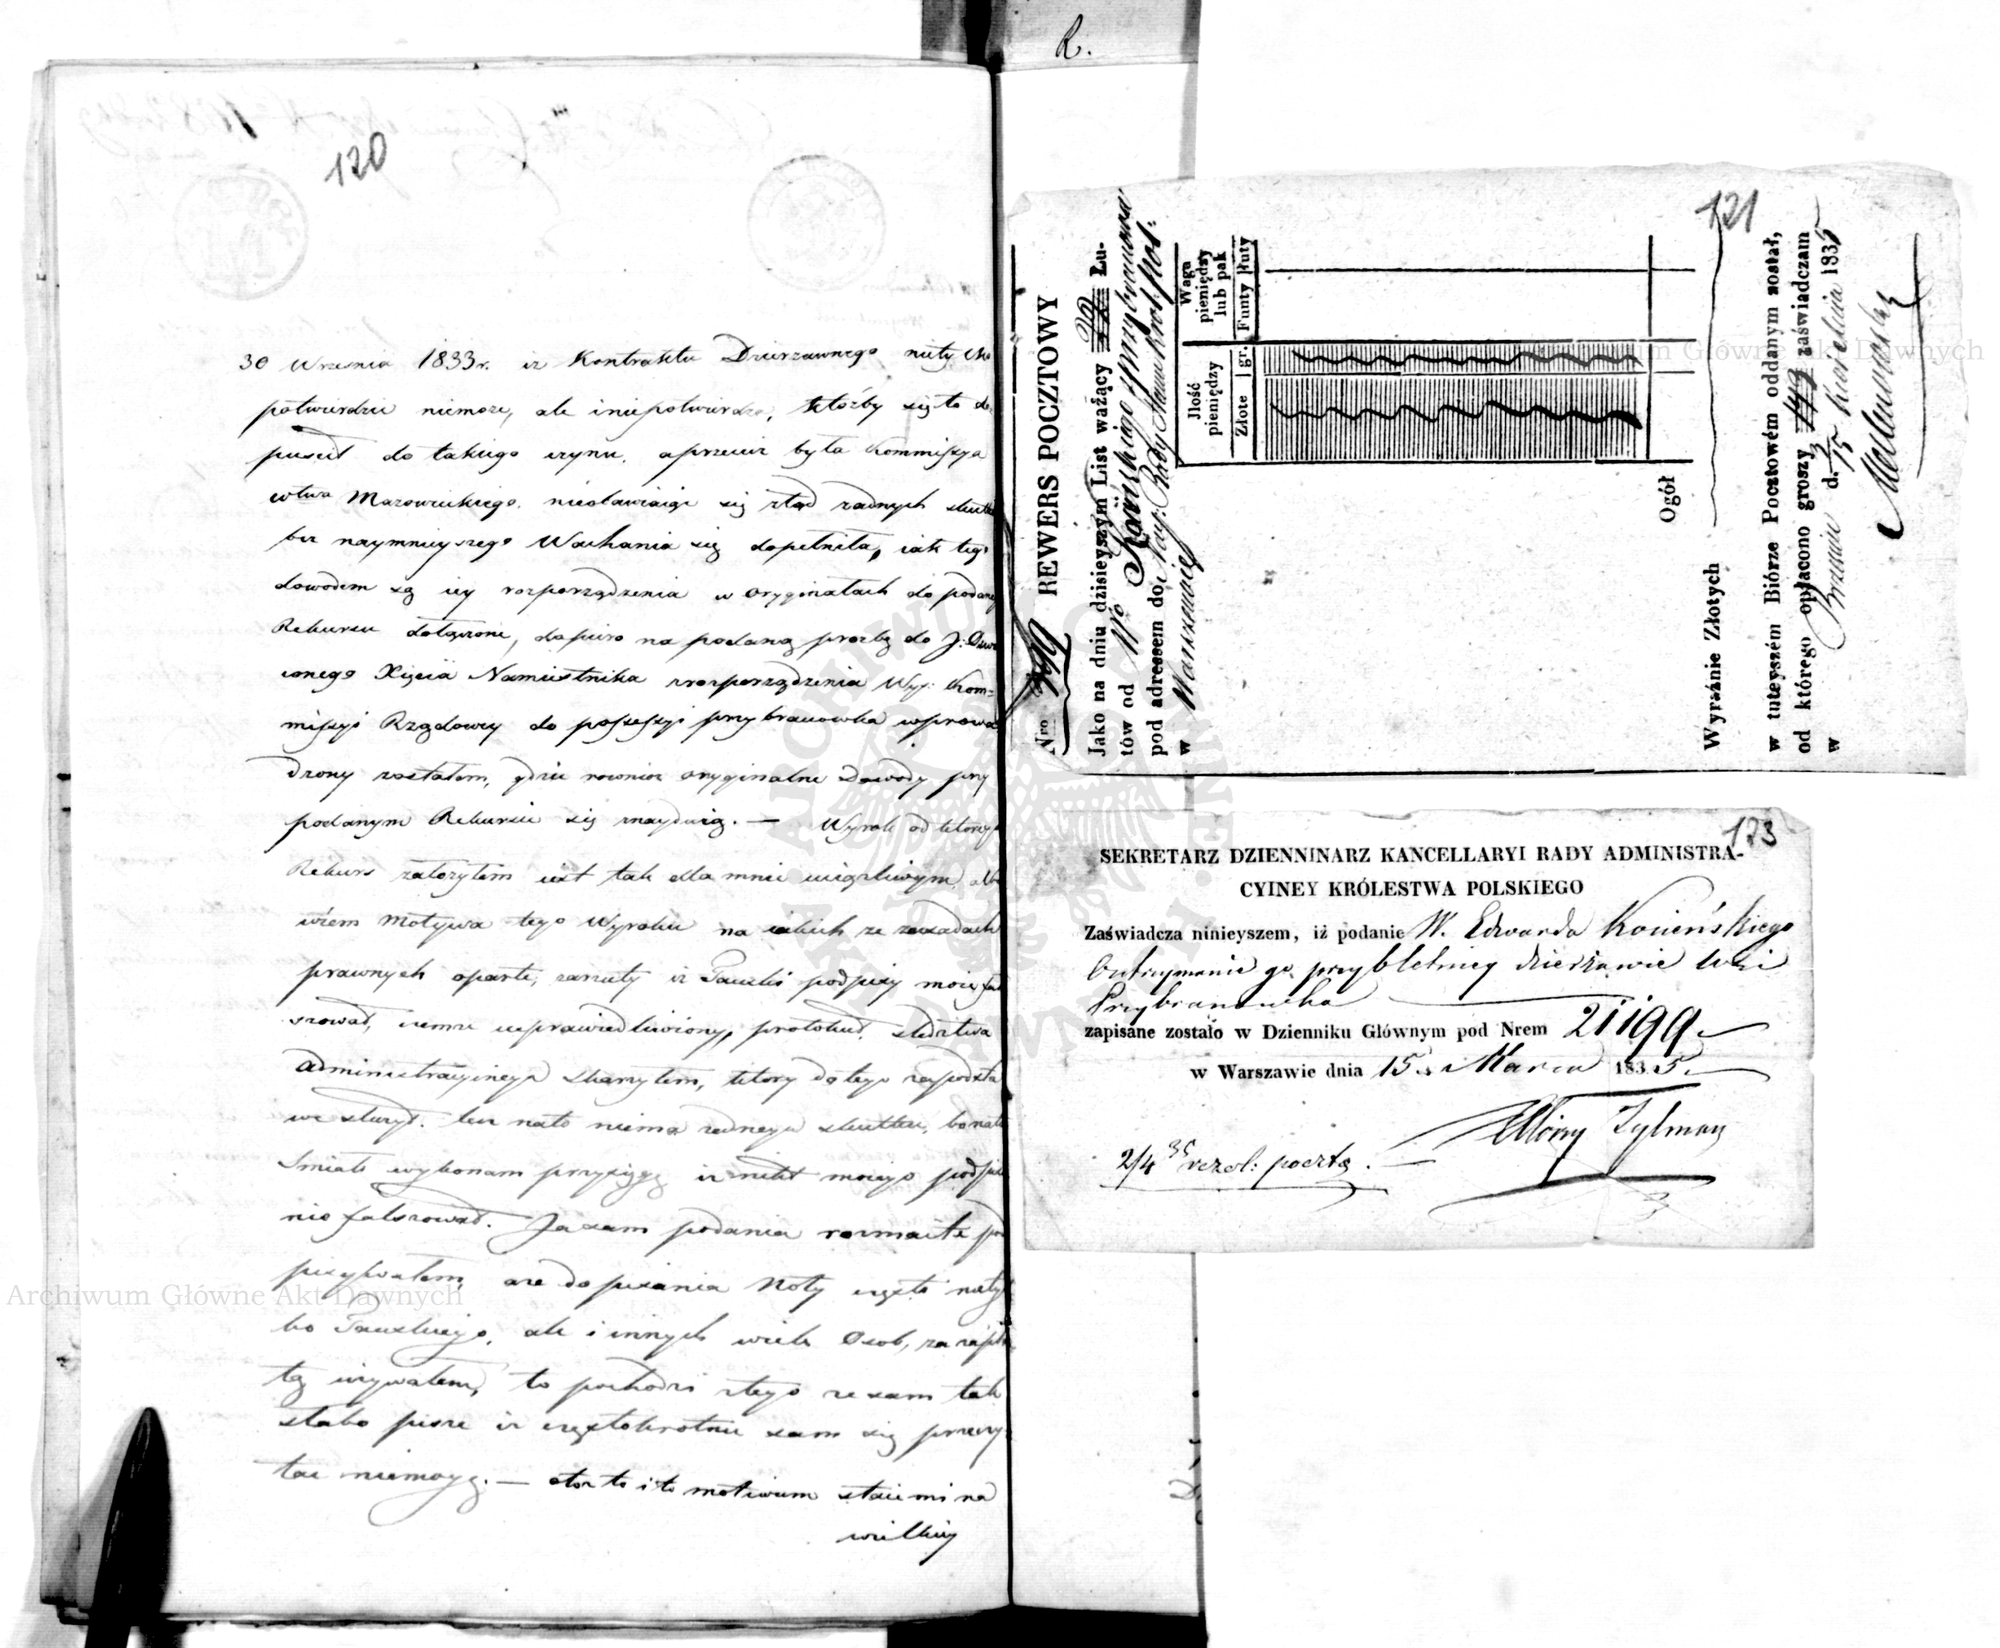 120
30 Września 1833 r. iż Kontraktu Dzierzawnego nietylko
potwierdzić niemoże, ale i niepotwierdza, któżby się to do
puścił do takiego czynu, a przecież była Kommissya
wtwa Mazowieckiego, niestawiaiąc się ztąd żadnych skutków
bez naymnieyszego Wachania się dopełniła, iak tego
dowodem są iey rozporządzenia w oryginałach do podanego
Rekursu dołączone, dopiero na podaną prozbę do J: Oswie
conego Xięcia Namiestnika zrozporządzenia Wyż: Kom=
missyi Rządowey do possessyi przybranowka wprowa
dzony zostałem, gdzie rownież oryginalne Dowody przy
podanym Rekursie się znayduią. — Wyrok od ktorego
Rekurs założyłem iest tak dla mnie uciążliwym, albo
wiem Motywa tego Wyroku na iakich że zasadach
prawnych oparte, zarzuty iż podpisy moie fał
szował, czemże usprawiedliwiony, protokuł śledztwa
administracyinego skarzyłem, ktory do tego
służył. lecz nato niema żadnego skutku, bo nato
Smiało wykonam przysięgę iż nikt moiego podpisu
nie fałszował. Ja sam podania rozmaite pod
pisywałem, a że do pisania Noty często nietyl
ko, ale i innych wiele Osob, za zapła
tą używałem, to pochodzi ztego że sam tak
słabo pisze iż częstokrotnie sam się przeczy
tać niemogę. — otoż to i to motivum staie mi na
wielkiey
R.
121
Nro REWERS POCZTOWY
Jako na dniu dzisieyszym List ważący Łu-
tów od Wo Kocińskiego z Przybranowa
pod adresem do Nay: Rady Admin: Krol: Pol:
w Warszawie
Ilość pieniędzy
Złote gr.
Waga pieniędzy lub pak
Funty łuty
Ogół
Wyraźnie Złotych
w tuteyszém Biórze Pocztowém oddanym został,
od którego opłacono groszy zaświadczam
w d. 15 Kwietnia 1835
123
SEKRETARZ DZIENNINARZ KANCELLARYI RADY ADMINISTRA-
CYINEY KRÓLESTWA POLSKIEGO
Zaświadcza ninieyszem, iż podanie W. Edwarda Kocieńskiego
O utrzymanie go przy 6letniey dzierżawie Wsi
Przybranowka
zapisane zostało w Dzienniku Głównym pod Nrem 21199.
w Warszawie dnia 15. Marca 1835.
2/4 35 rezol: pocztą.
Archiwum Główne Akt Dawnych
Archiwum Główne Akt Dawnych